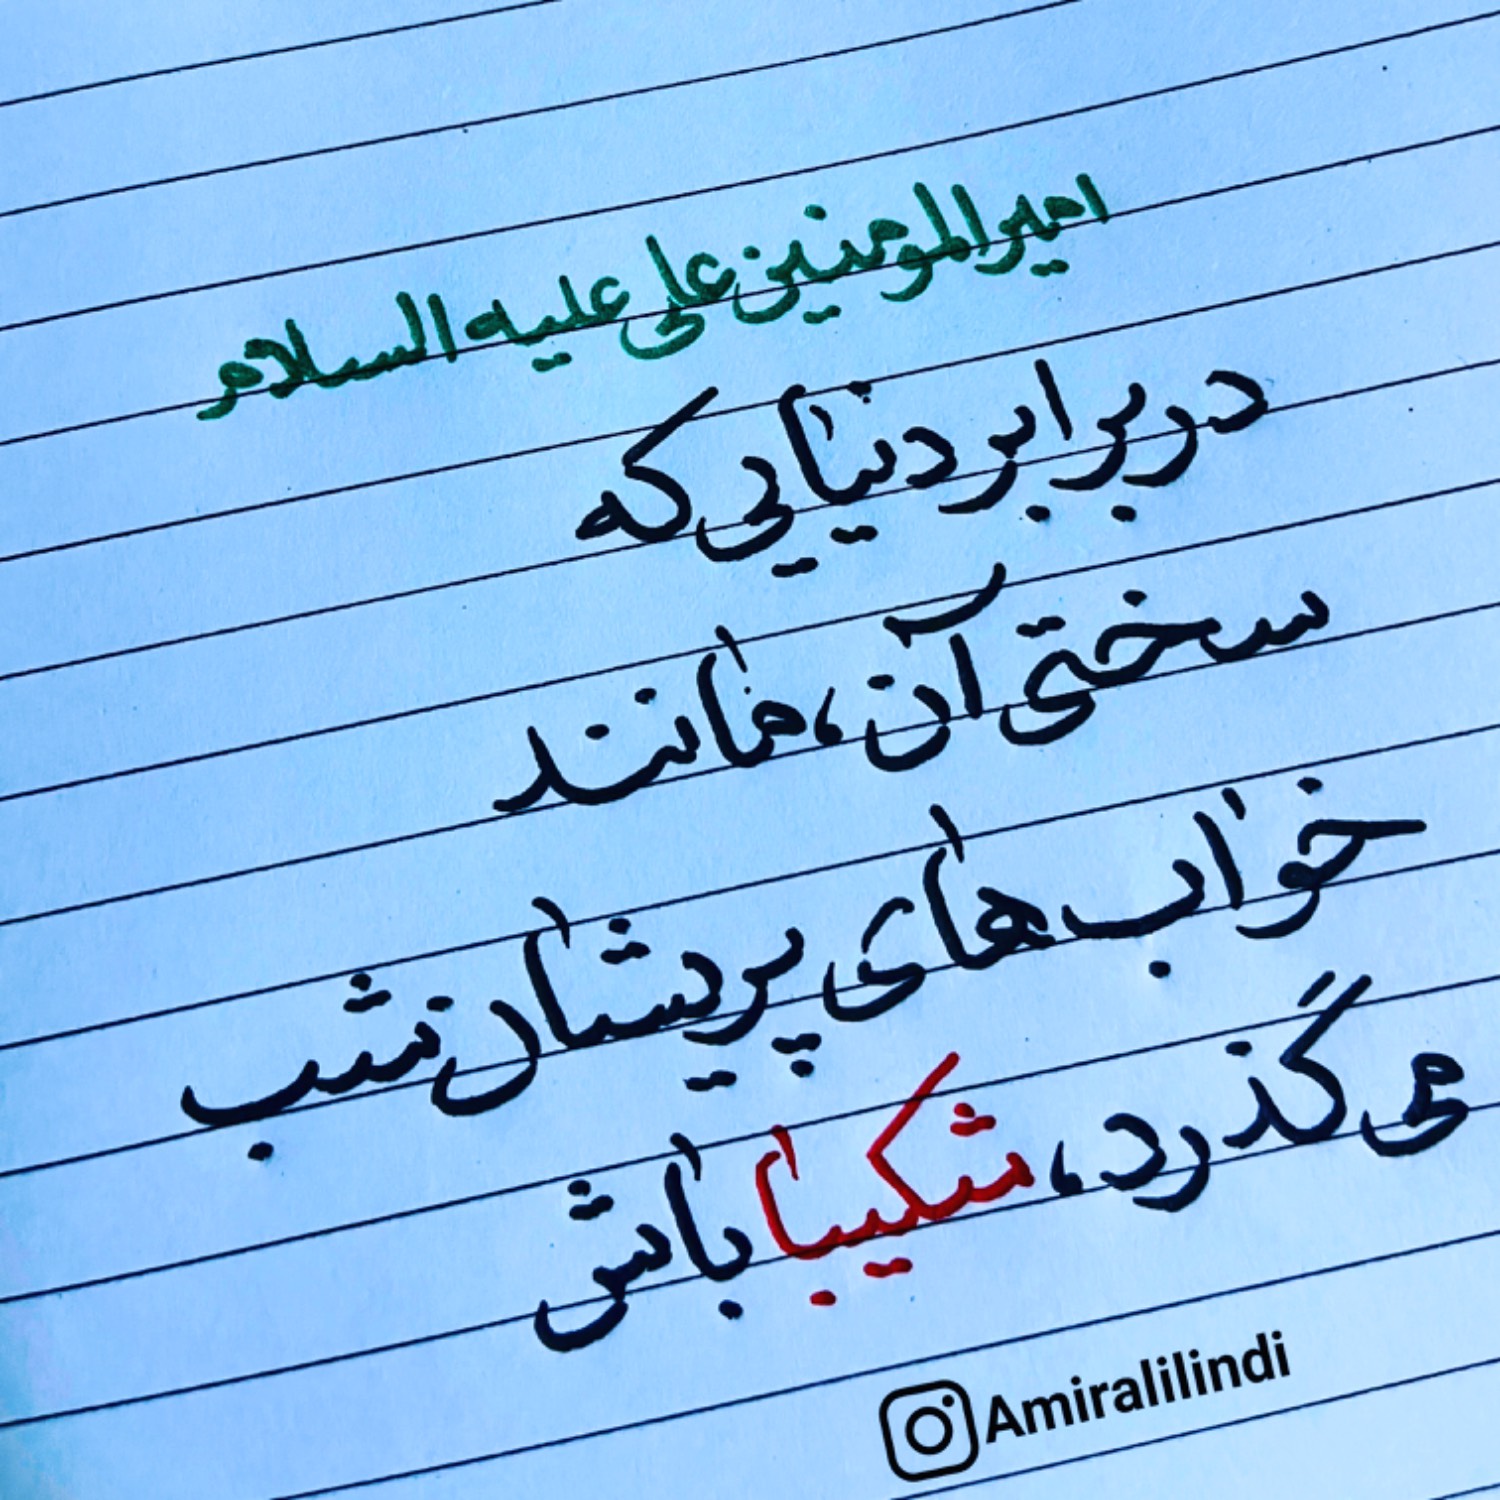 امیرالمومنین علی علیه السلام
در برابر دنیایی که
سختی آن، مانند
خواب های پریشان شب
می گذرد، شکیبا باش
Amiralilindi